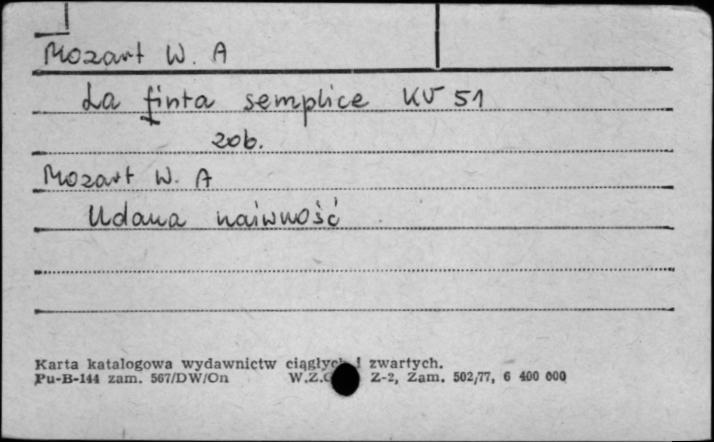 Mozart W. A
La finta semplice KV 51
zob.
Mozart W. A
Udana naiwność
Karta katalogowa wydawnictw ciągłych i zwartych.
Pu-B-144 zam. 567/DW/On W.Z. Z-2, Zam. 502/77, 6 400 000